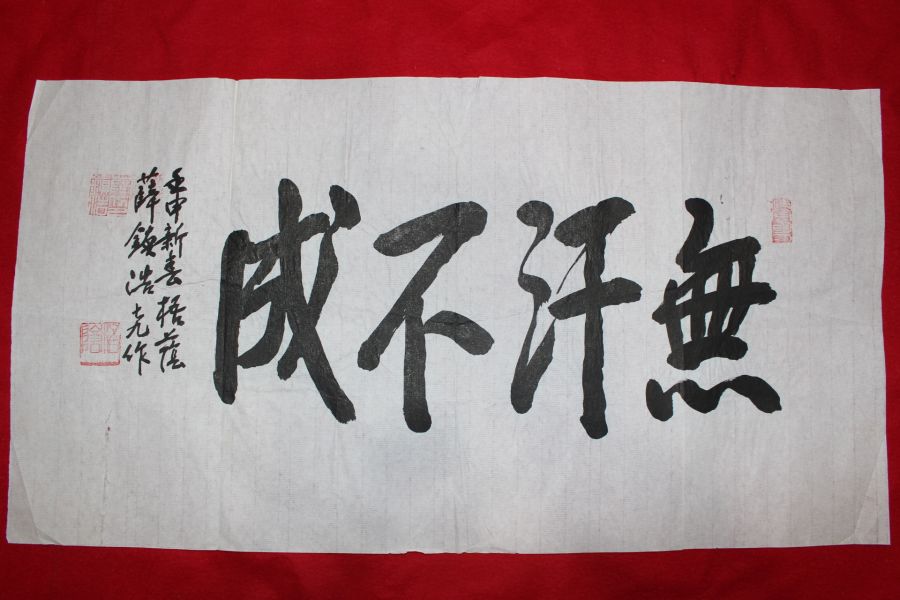 無汗不成
壬申新春梧蔭
薛鎮浩 作